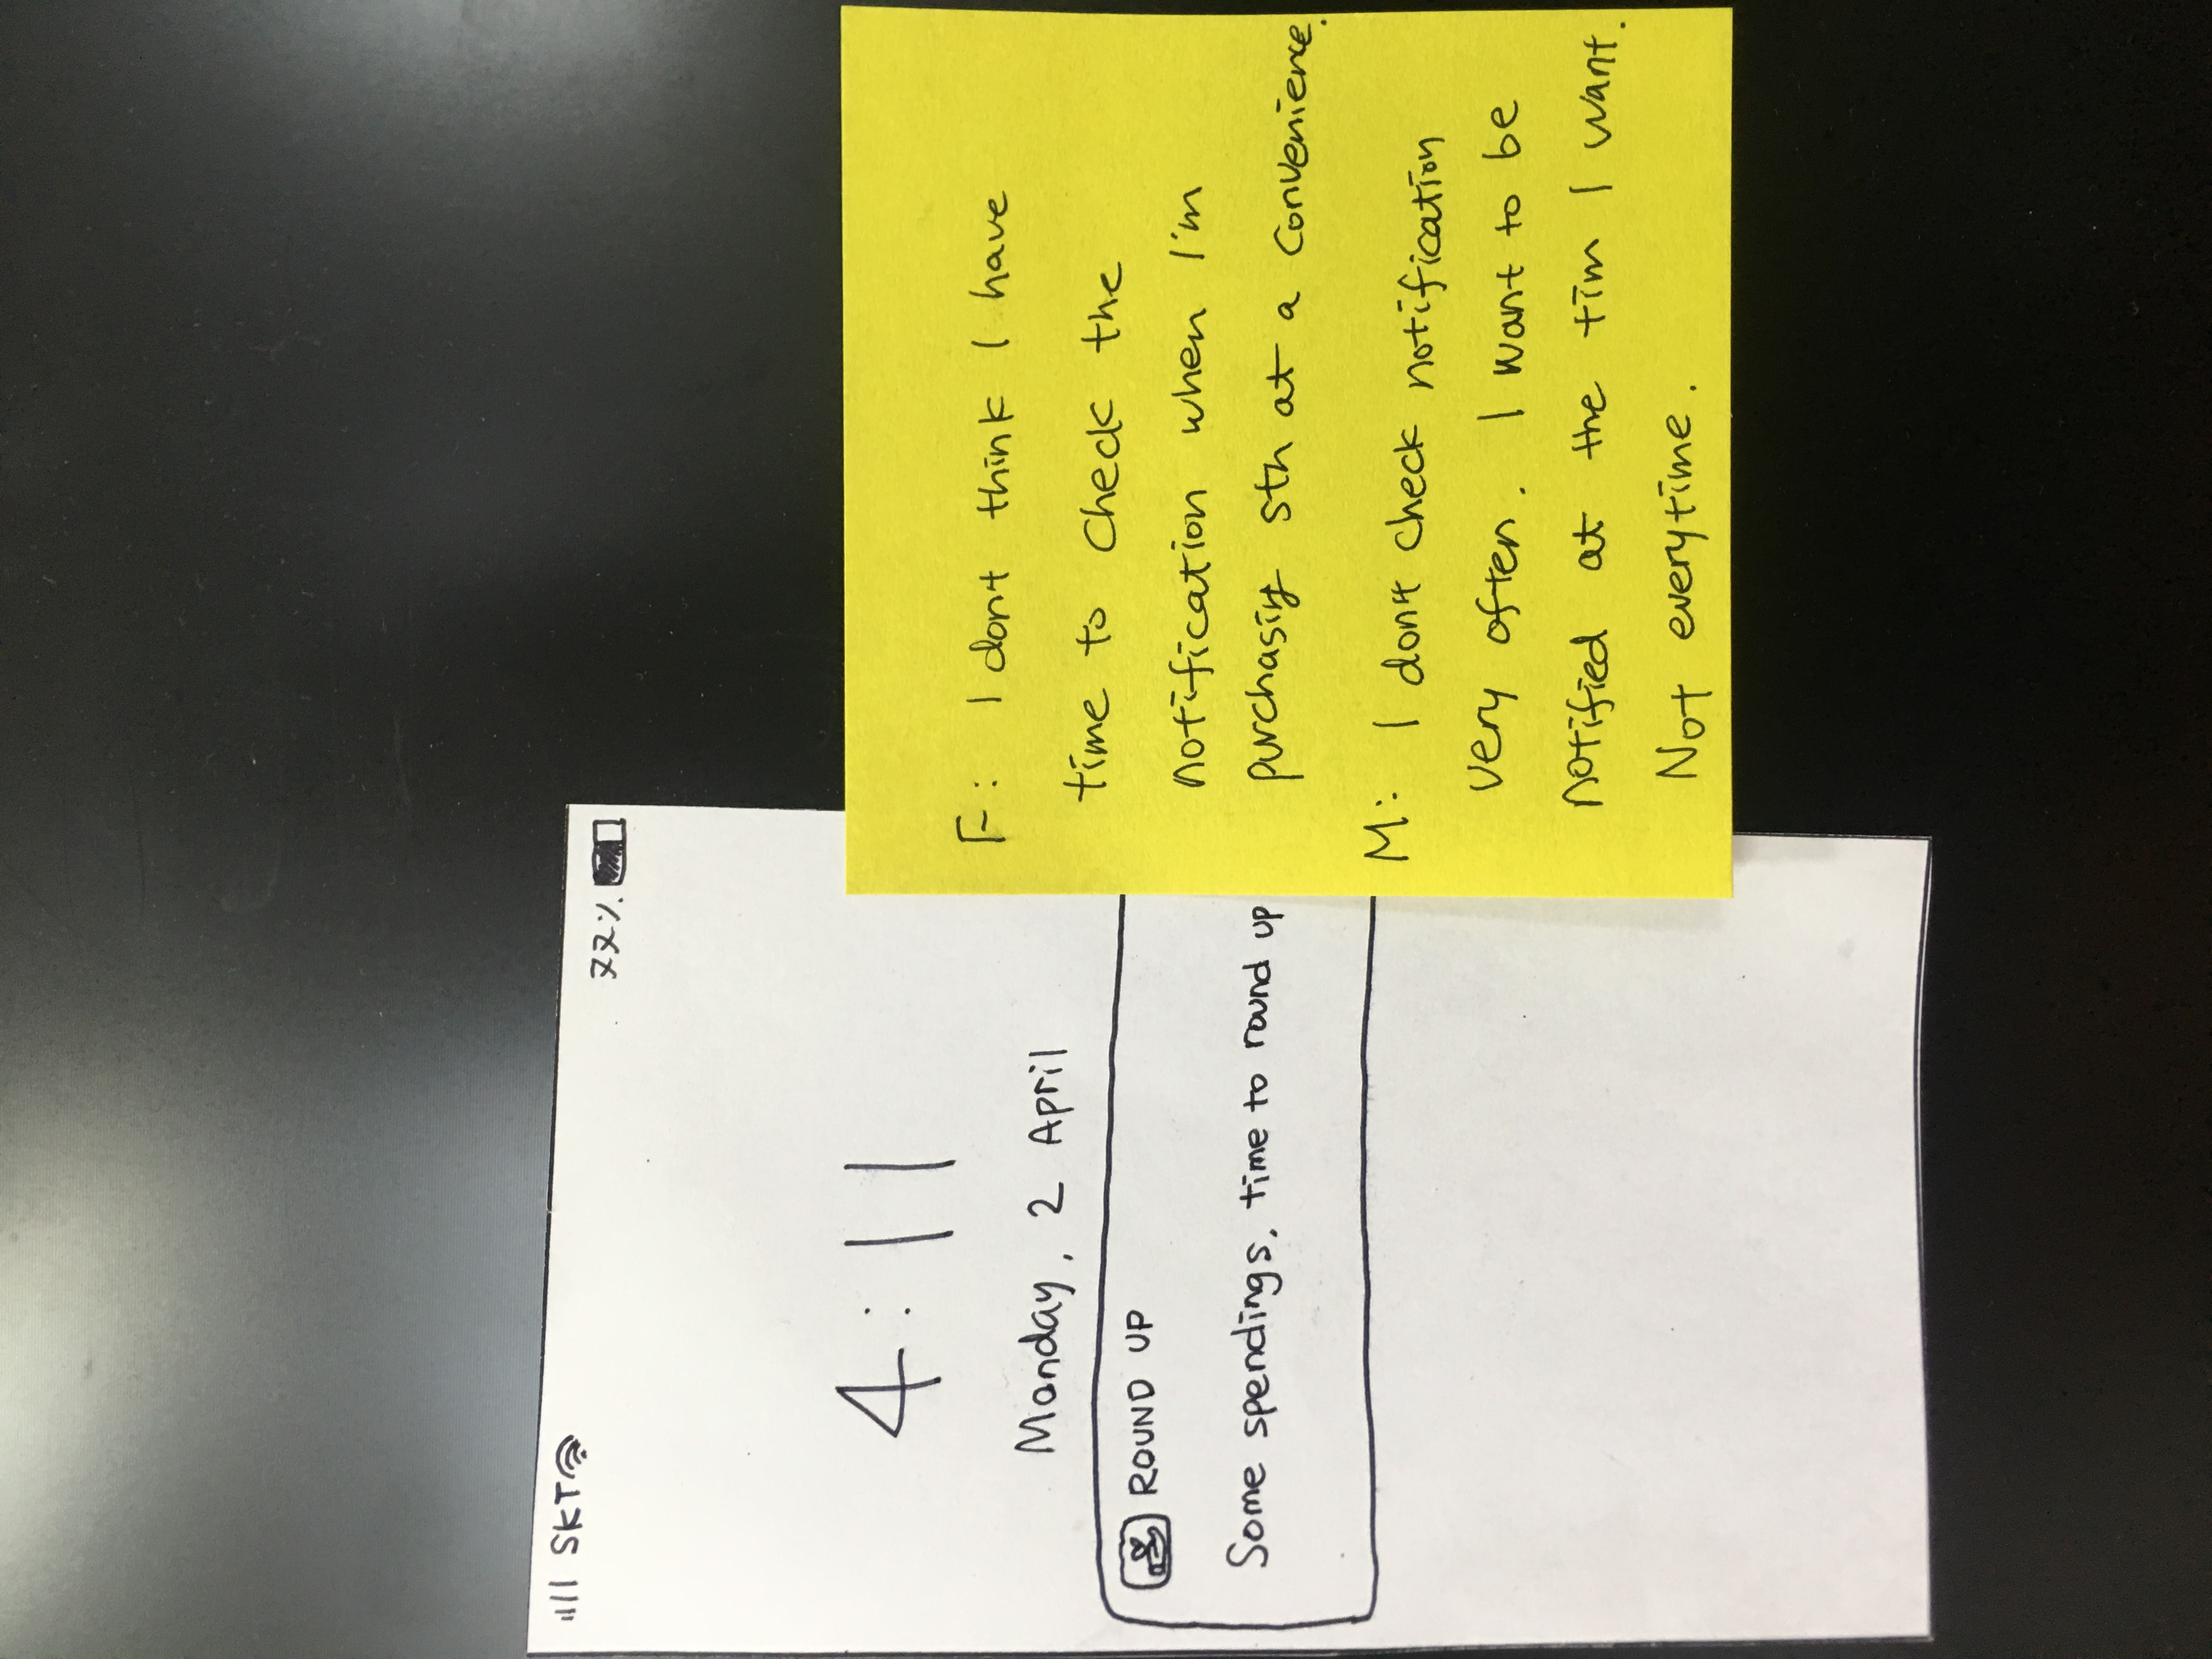 SKT
77%
4:11
Monday, 2 April
ROUND UP
Some spendings, time to round up
F: I don't think I have
time to check the
notification when I'm
purchasing sth at a convenience.
M: I don't check notification
very often. I want to be
notified at the tim I want.
Not everytime.